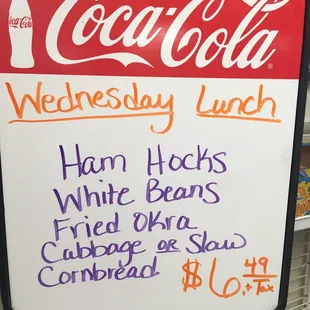 Coca-Cola
Coca-Cola
Wednesday Lunch
Ham Hocks
White Beans
Fried Okra
Cabbage or Slaw
Cornbread
$6.49 + Tax